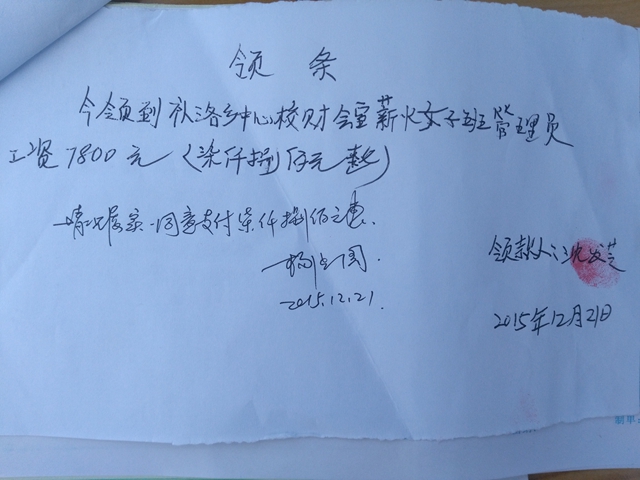 领 条
今领到补洛乡中心校财会室薪火女子班管理员
工资7800元(柒仟捌佰元整)
情况属实.同意支付柒仟捌佰元整.
2015.12.21
领款人:沈
2015年12月21日
制单: